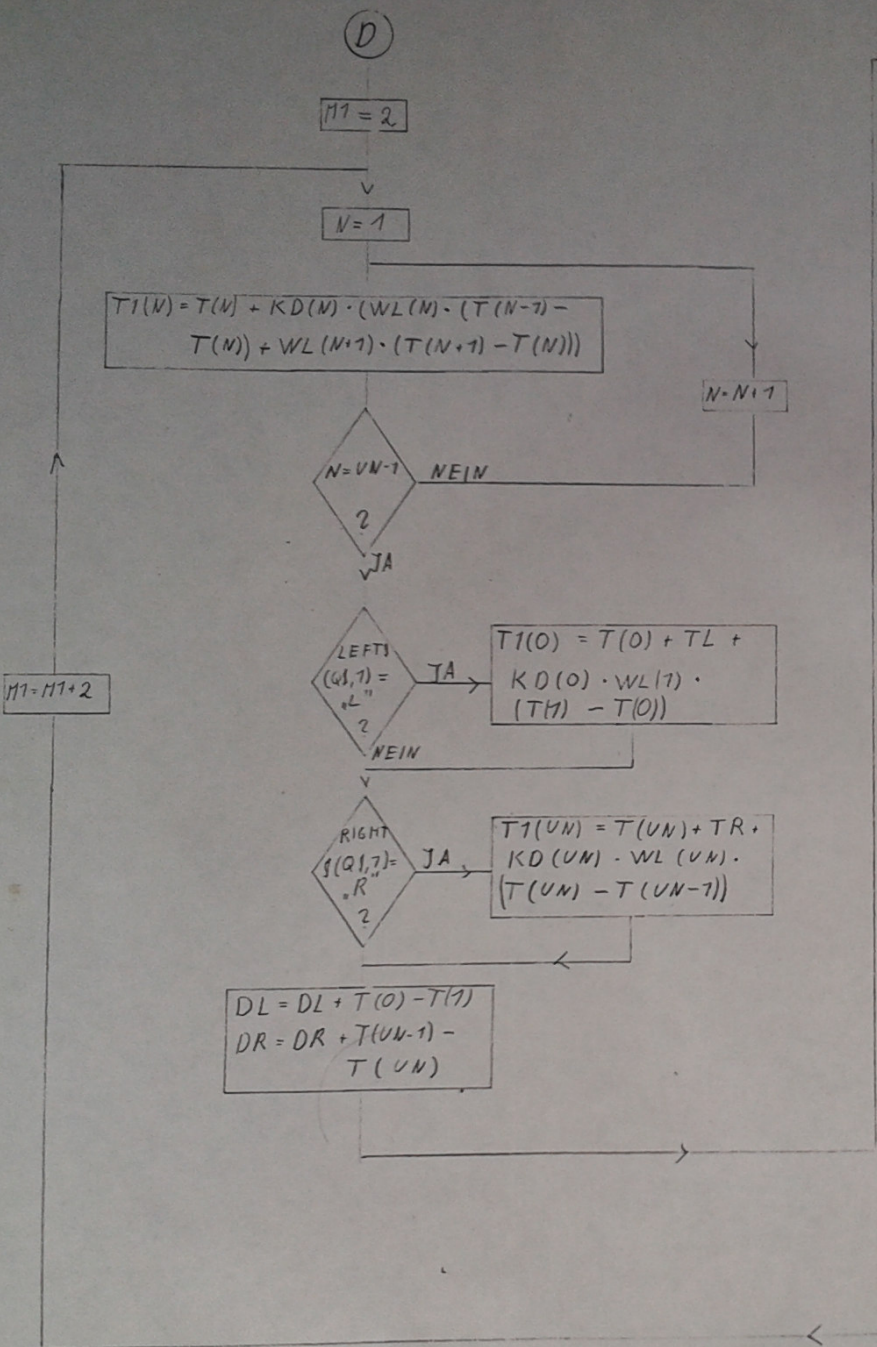 D
M1 = 2
N = 1
T1(N) = T(N) + KD(N) · (WL(N) · (T(N-1) -
T(N)) + WL(N+1) · (T(N+1) - T(N)))
N=N+1
N=UN-1
?
NEIN
JA
LEFT$
(Q$,1) =
„L"
?
JA
NEIN
T1(0) = T(0) + TL +
KD(0) · WL(1) ·
(T(1) - T(0))
M1=M1+2
RIGHT
$(Q$,1)=
„R"
?
JA
T1(UN) = T(UN) + TR +
KD(UN) · WL(UN) ·
(T(UN) - T(UN-1))
DL = DL + T(0) - T(1)
DR = DR + T(UN-1) -
T(UN)